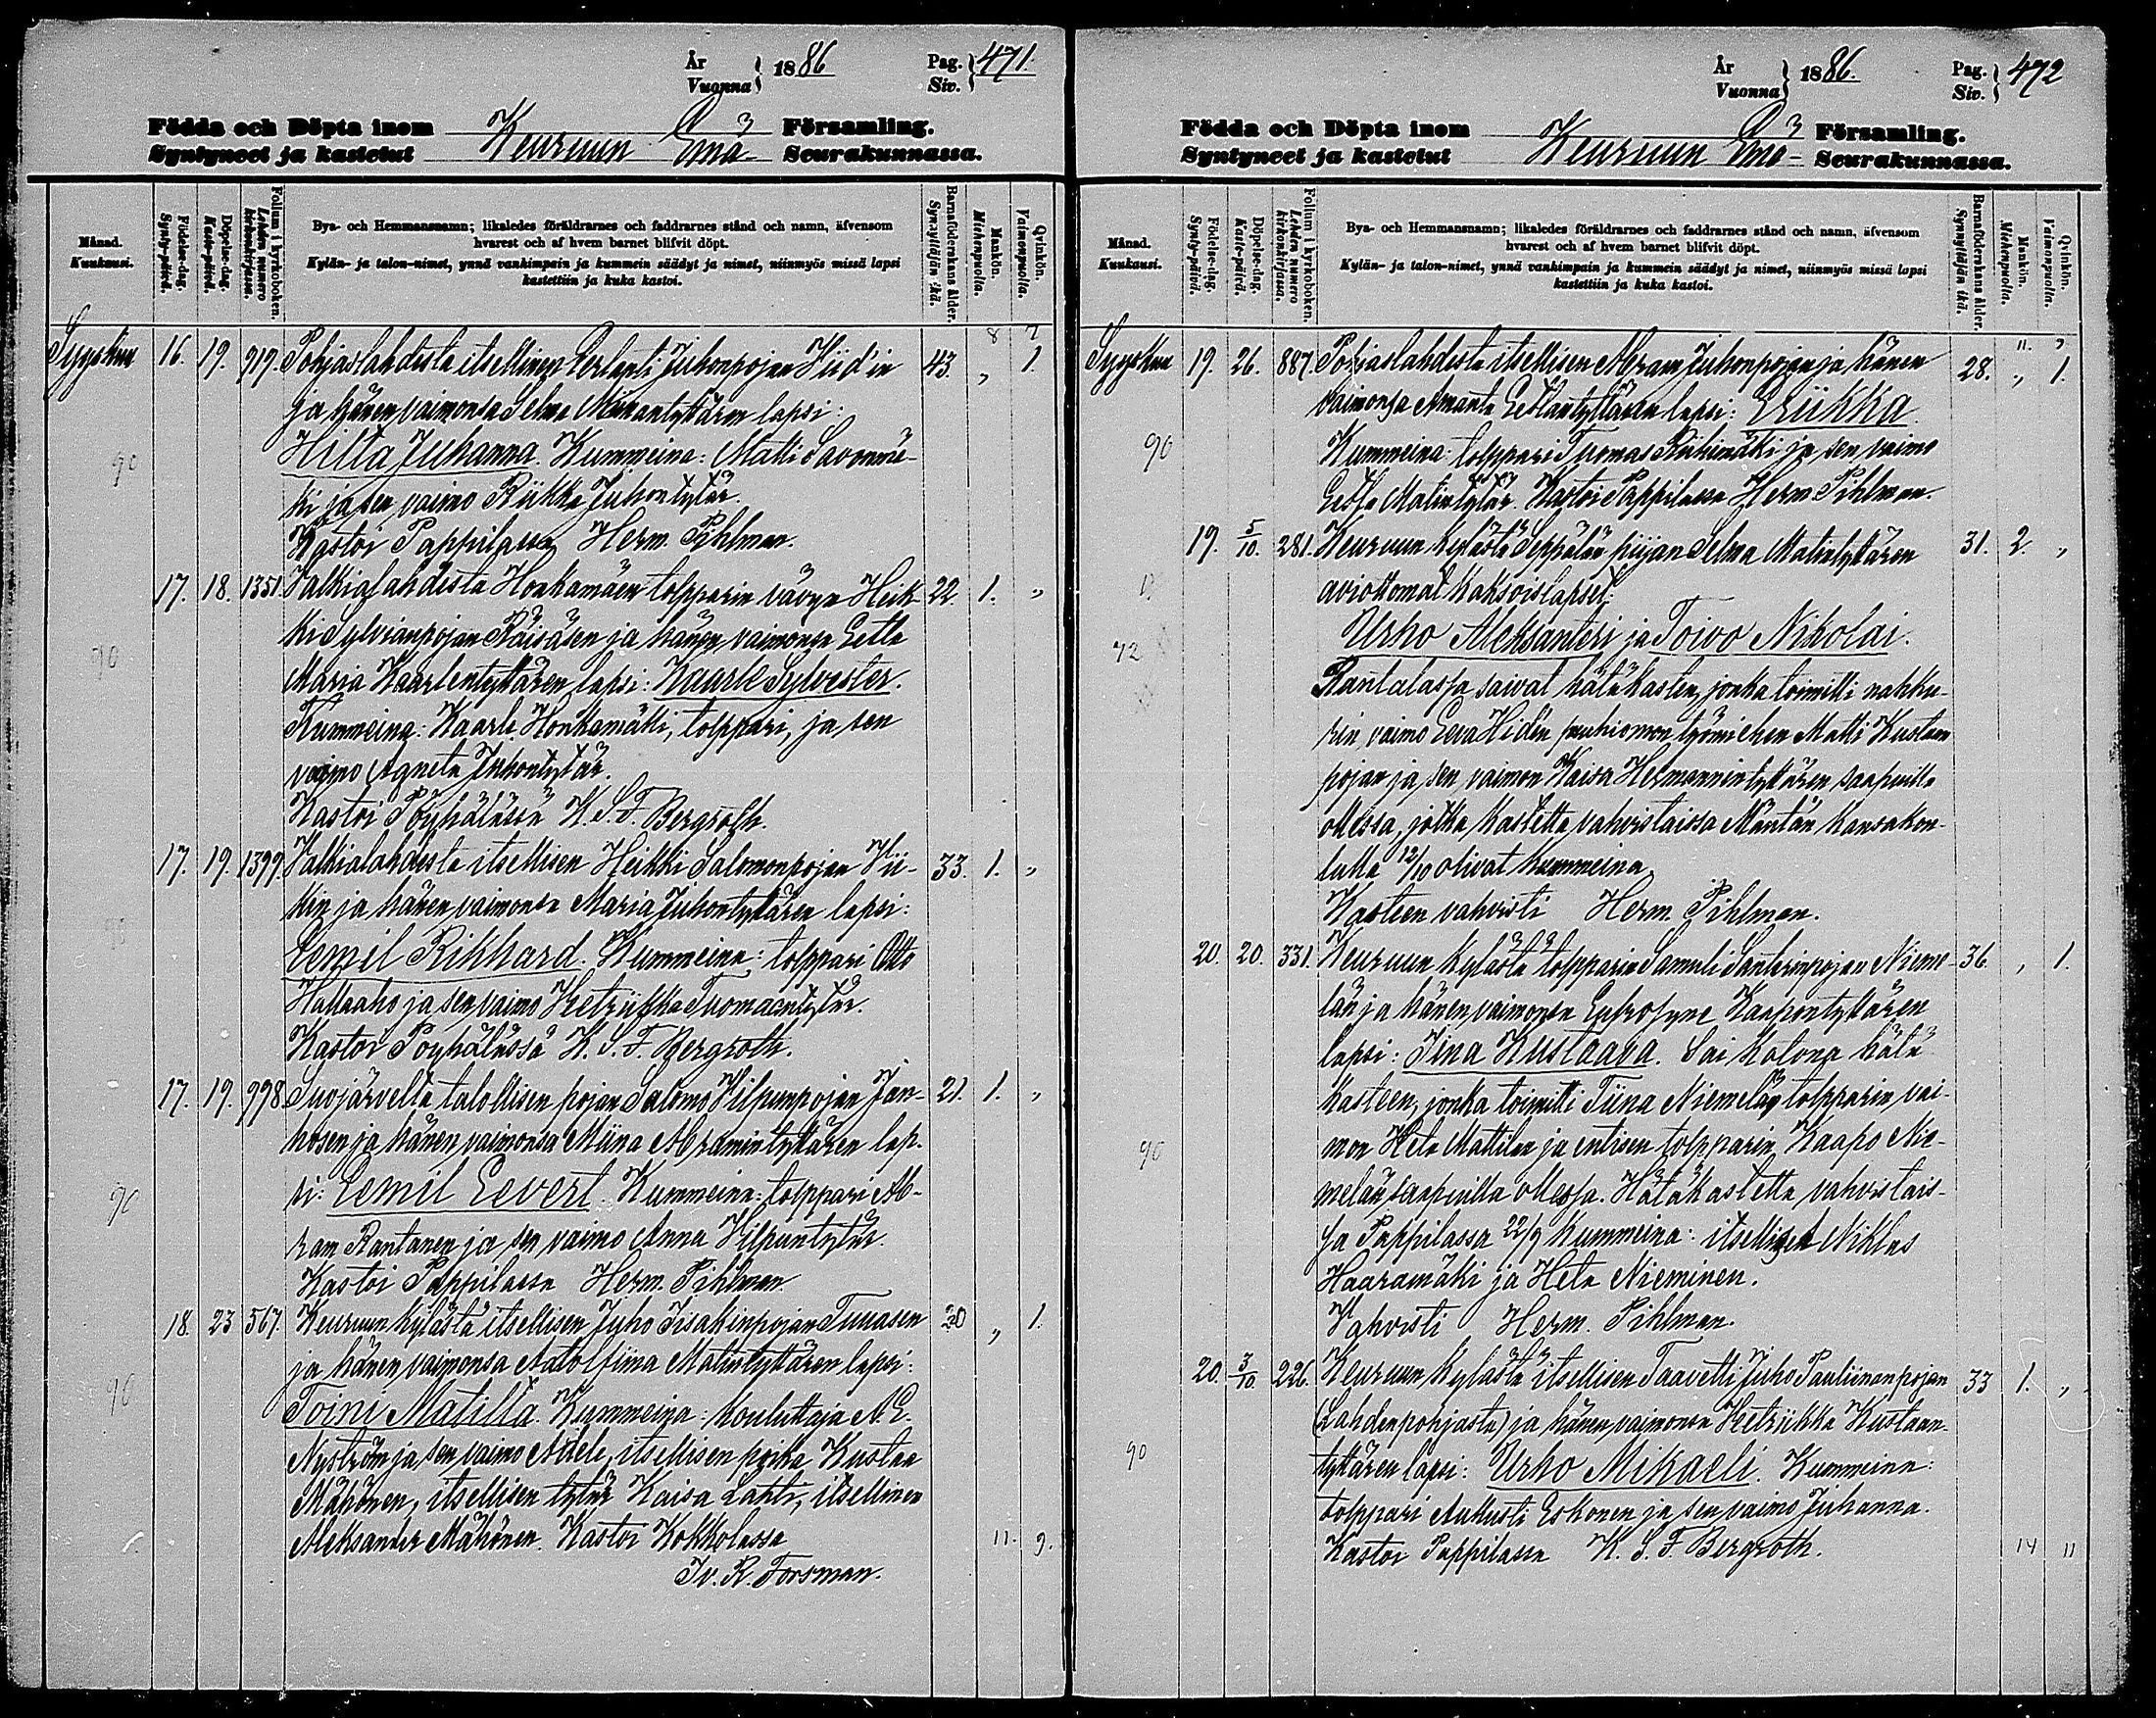 År
Vuonna
1886
Pag.
Siv.
471.
Födda och Döpta inom
Syntyneet ja kastetut
Keuruun Emä-
Församling.
Seurakunnassa.
Månad.
Kuukausi.
Födelse-dag.
Synty-päivä.
Döpelse-dag.
Kaste-päivä.
Folium i kyrkoboken.
Lehden numero kirkonkirjassa.
Bya- och Hemmansnamn; likaledes föräldrarnes och faddrarnes stånd och namn, äfvensom
hvarest och af hvem barnet blifvit döpt.
Kylän- ja talon-nimet, ynnä vanhimpain ja kummein säädyt ja nimet, niinmyös missä lapsi
kastettiin ja kuka kastoi.
Barnaföderskans ålder.
Synnyttäjän ikä.
Mankön.
Miehenpuolia.
Qvinkön.
Vaimonpuolia.
8 7
Syyskuu 16. 19. 717. Pohjaslahdesta itsellinen Juhonpojan Hiid'in 43. „ 1.
ja hänen vaimonsa Selma lapsi:
90 Hilta Juhanna. Kummeina: Matti Savonmä-
ki ja sen vaimo Riikka Juhontytär.
Kastoi Pappilassa Herm. Pihlman.
17. 18. 1351. Valkialahdesta Honkamäen tolpparin vävyn Heik- 22. 1. „
ki Sylvianpojan Räisäsen ja hänen vaimonsa Eetla
90 Maria Kaarlentyttären lapsi: Kaarle Sylvester.
Kummeina: Kaarle Honkamäki, tolppari, ja sen
vaimo Agneta Juhontytär.
Kastoi Pöyhälässä K. S. F. Bergroth.
17. 19. 1399. Valkialahdesta itsellisen Heikki Salomonpojan Vii- 33. 1. „
kin ja hänen vaimonsa Maria Juhontyttären lapsi:
Eemil Rikhard. Kummeina: tolppari Otto
Hallaaho ja sen vaimo Hetriikka Tuomaantytär.
Kastoi Pöyhälässä K. S. F. Bergroth.
17. 19. 998. Suojärveltä talollisen pojan Salomo Vilpunpojan Jan- 21. 1. „
hosen ja hänen vaimonsa Miina Abramintyttären lap-
90 si: Eemil Eevert. Kummeina: tolppari Ab-
ram Rantanen ja sen vaimo Anna Vilpuntytär.
Kastoi Pappilassa Herm. Pihlman.
18. 23 567. Keuruun kylästä itsellisen Juho Iisakinpojan Tuuasen 20 „ 1.
ja hänen vaimonsa Adolfiina Matintyttären lapsi:
90 Toini Matilta. Kummeina: kouluttaja A. E.
Nyström ja sen vaimo Adele, itsellisen poika Kustaa
Mähönen, itsellisen tytär Kaisa Lahti, itsellinen
Aleksander Mähönen. Kastoi Kokkolassa 11. 9.
Iv. R. Forsman.
År
Vuonna
1886.
Pag.
Siv.
472
Födda och Döpta inom
Syntyneet ja kastetut
Keuruun Emä-
Församling.
Seurakunnassa.
Månad.
Kuukausi.
Födelse-dag.
Synty-päivä.
Döpelse-dag.
Kaste-päivä.
Folium i kyrkoboken.
Lehden numero kirkonkirjassa.
Bya- och Hemmansnamn; likaledes föräldrarnes och faddrarnes stånd och namn, äfvensom
hvarest och af hvem barnet blifvit döpt.
Kylän- ja talon-nimet, ynnä vanhimpain ja kummein säädyt ja nimet, niinmyös missä lapsi
kastettiin ja kuka kastoi.
Barnaföderskans ålder.
Synnyttäjän ikä.
Mankön.
Miehenpuolia.
Qvinkön.
Vaimonpuolia.
11.
Syyskuu 19. 26. 887. Pohjaslahdesta itsellisen Abram Juhonpojan ja hänen 28. „ 1.
vaimonsa Amanta lapsi: Eriikka.
90 Kummeina: tolppari Tuomas Riihimäki ja sen vaimo
Eetla Matintytär. Kastoi Pappilassa Herm. Pihlman.
19. 5/10. 281. Keuruun kylästä Seppälän piijan Selma Matintyttären 31. 2. „
aviottomat kaksoislapset:
Urho Aleksanteri ja Toivo Nikolai.
72
Rantalassa saivat hätäkasteen, jonka toimitti nahku-
rin vaimo Eeva Hiden puuhiomon työmiehen Matti Kustaan-
pojan ja sen vaimon Kaisa Hermannintyttären saapuilla
ollessa, jotka kastetta vahvistaissa Mäntän kansakou-
lulla 12/10 olivat kummeina.
Kasteen vahvisti Herm. Pihlman.
20. 20. 331. Keuruun kylästä tolpparin Samuli Santerinpojan Nieme- 36. „ 1.
län ja hänen vaimonsa Eufrosyne Kaapontyttären
lapsi: Iina Kustaava. Sai kotona hätä-
kasteen, jonka toimitti Tiina Niemelän tolpparin vai-
90 mon Heta Mattilan ja entisen tolpparin Kaapo Nie-
melän saapuilla ollessa. Hätäkastetta vahvistais-
sa Pappilassa 22/9 Kummeina: itselliset Niklas
Haaramäki ja Heta Nieminen.
Vahvisti Herm. Pihlman.
20. 3/10. 226. Keuruun kylästä itsellisen Taavetti Juho Pauliinanpojan 33 1. „
(Lahdenpohjasta) ja hänen vaimonsa Hetriikka Kustaan-
90 tyttären lapsi: Urho Mikaeli. Kummeina:
tolppari Aukusti Eskonen ja sen vaimo Juhanna.
Kastoi Pappilassa K. S. F. Bergroth. 14 11